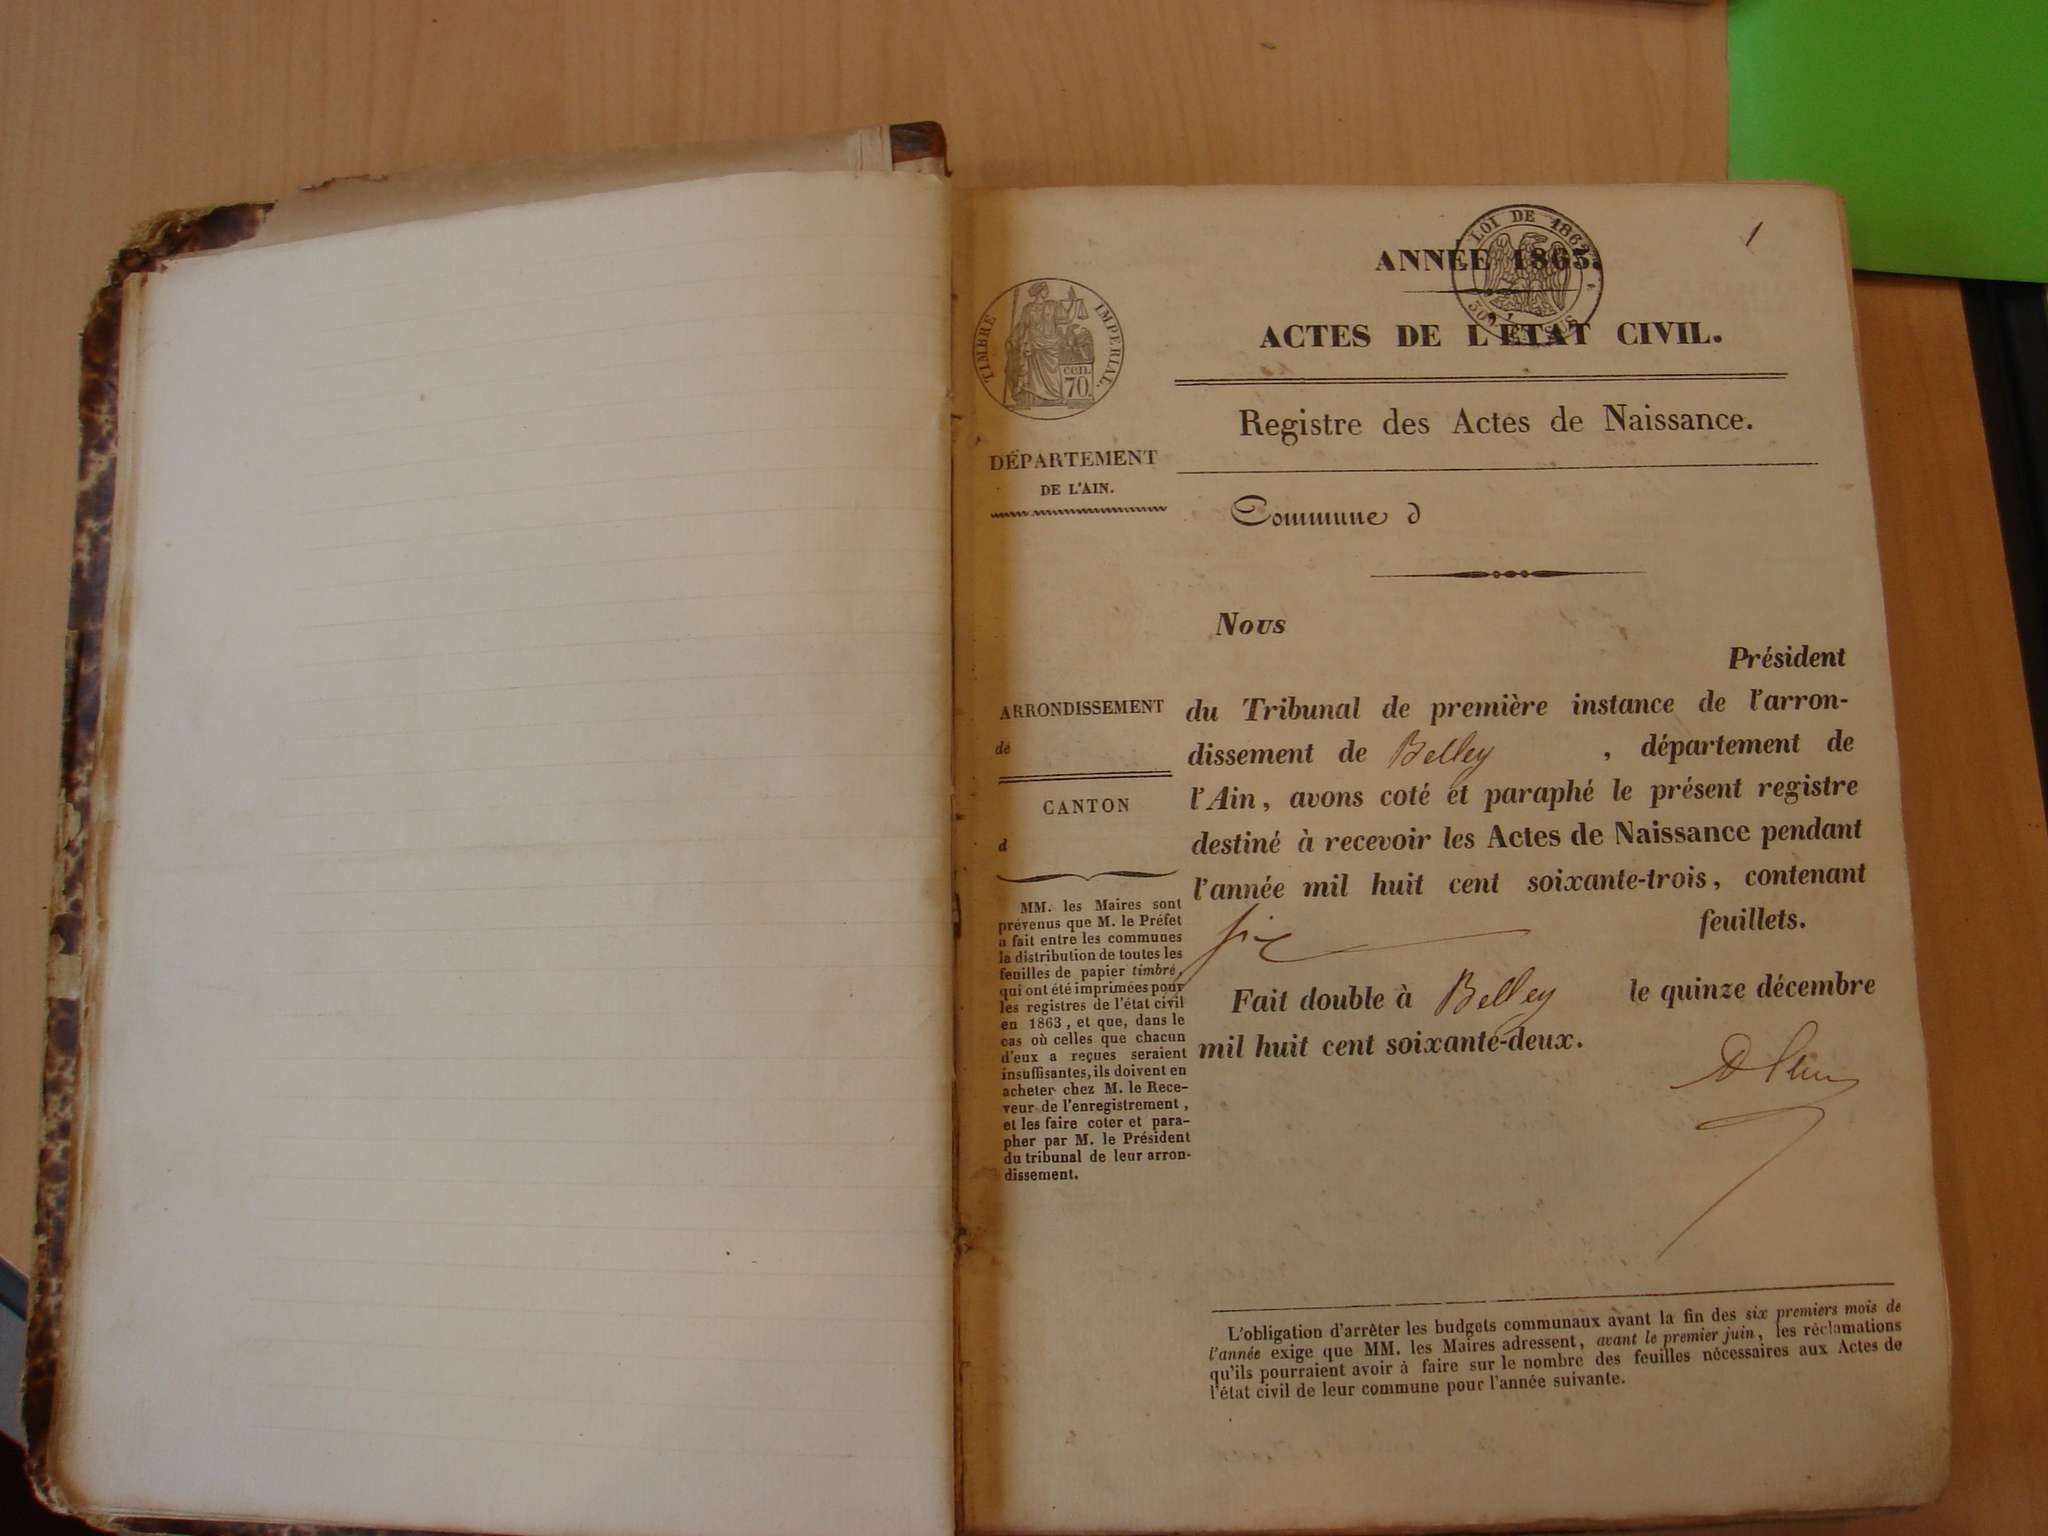 1
LOI DE 1862
ANNÉE 1863.
TIMBRE IMPERIAL.
cen.
70.
ACTES DE L'ÉTAT CIVIL.
Registre des Actes de Naissance.
DÉPARTEMENT
DE L'AIN.
Commune d
Nous
Président
du Tribunal de première instance de l'arron-
dissement de Belley , département de
l'Ain, avons coté et paraphé le présent registre
destiné à recevoir les Actes de Naissance pendant
l'année mil huit cent soixante-trois, contenant
six feuillets.
Fait double à Belley le quinze décembre
mil huit cent soixante-deux.
ARRONDISSEMENT
de
CANTON
d
MM. les Maires sont
prévenus que M. le Préfet
a fait entre les communes
la distribution de toutes les
feuilles de papier timbré,
qui ont été imprimées pour
les registres de l'état civil
en 1863, et que, dans le
cas où celles que chacun
d'eux a reçues seraient
insuffisantes, ils doivent en
acheter chez M. le Rece-
veur de l'enregistrement,
et les faire coter et para-
pher par M. le Président
du tribunal de leur arron-
dissement.
L'obligation d'arrêter les budgets communaux avant la fin des six premiers mois de
l'année exige que MM. les Maires adressent, avant le premier juin, les réclamations
qu'ils pourraient avoir à faire sur le nombre des feuilles nécessaires aux Actes de
l'état civil de leur commune pour l'année suivante.